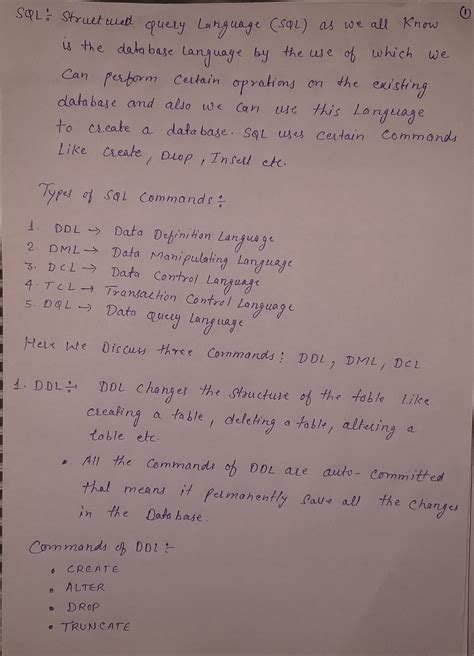 ①
SQL:- Structured Query Language (SQL) as we all know
is the database language by the use of which we
can perform certain oprations on the existing
database and also we can use this language
to create a database. SQL uses certain commands
like Create, Drop, Insert etc.
Types of SQL Commands:-
1. DDL → Data Definition Language
2. DML → Data Manipulating Language
3. DCL → Data Control Language
4. TCL → Transaction Control Language
5. DQL → Data Query Language
Here we Discuss three Commands: DDL, DML, DCL
1. DDL:- DDL changes the structure of the table like
creating a table, deleting a table, altering a
table etc.
• All the commands of DDL are auto-committed
that means it permanently save all the changes
in the Database.
Commands of DDL:-
• CREATE
• ALTER
• DROP
• TRUNCATE